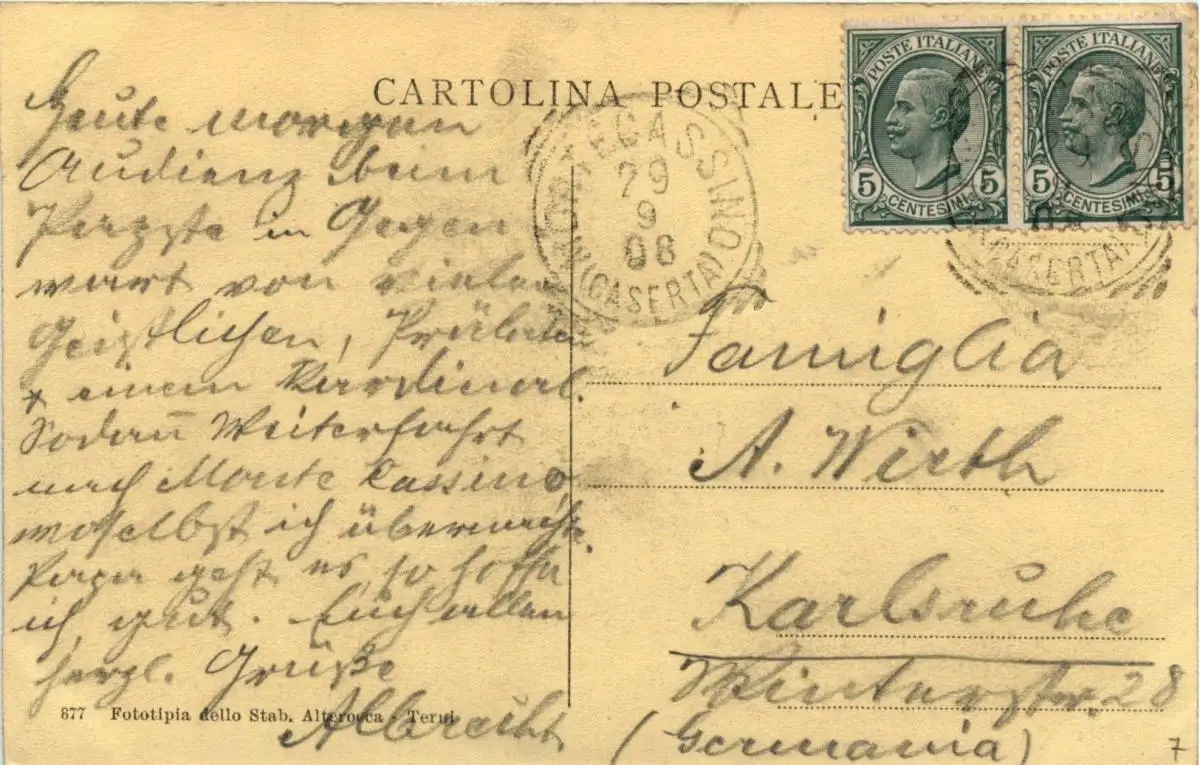 CARTOLINA POSTALE
Heute morgen
Audienz beim
Papste in Gegen
wart von vielen
Geistlichen, Prälaten
+ einem Kardinal.
Sodañ Weiterfahrt
nach Monte Cassino,
woselbst ich übernachte.
Papa geht es, so hoffe
ich, gut. Euch allen
herzl. Grüße
Albrecht
877 Fototipia dello Stab. Alterocca - Terni
POSTE ITALIANE
5 5
CENTESIMI
POSTE ITALIANE
5 5
CENTESIMI
MONTECASSINO
29
9
08
(CASERTA)
08
(CASERTA)
Famiglia
A. Wirth
Karlsruhe
Winterstr. 28
(Germania)
7